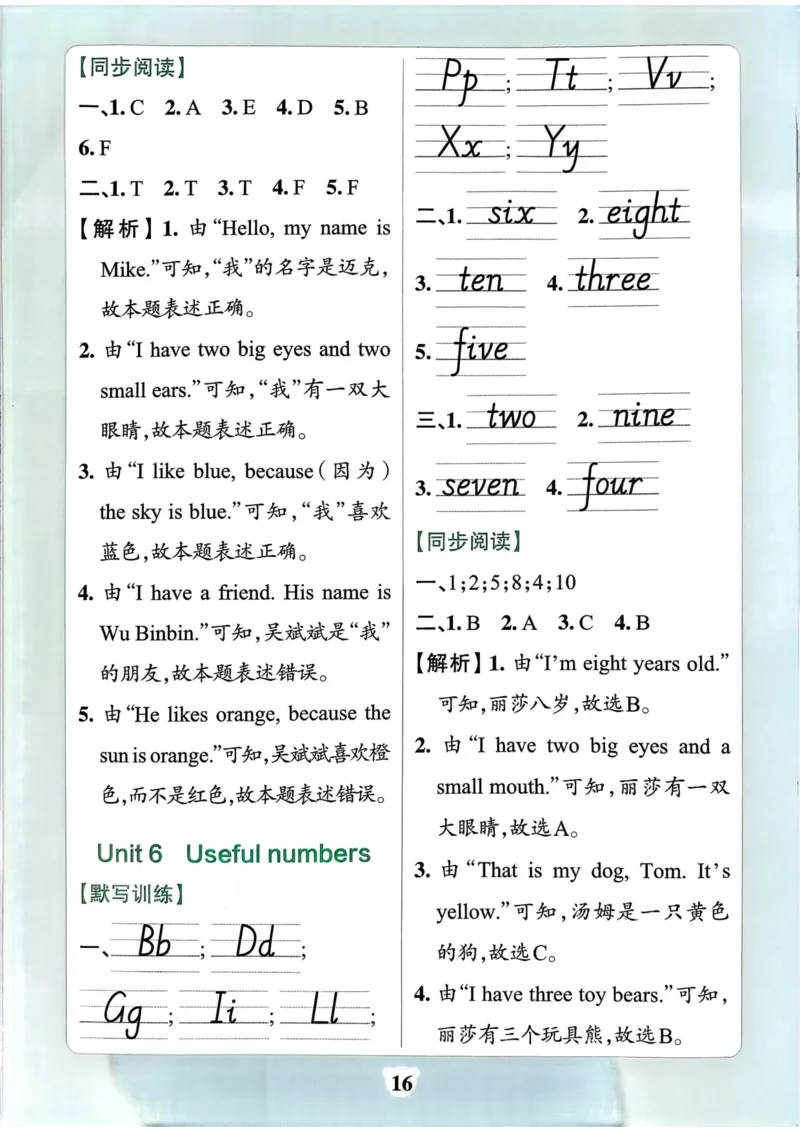 【同步阅读】
一、1. C 2. A 3. E 4. D 5. B
6. F
二、1. T 2. T 3. T 4. F 5. F
【解析】1. 由“Hello, my name is
Mike.”可知,“我”的名字是迈克,
故本题表述正确。
2. 由“I have two big eyes and two
small ears.”可知,“我”有一双大
眼睛,故本题表述正确。
3. 由“I like blue, because(因为)
the sky is blue.”可知,“我”喜欢
蓝色,故本题表述正确。
4. 由“I have a friend. His name is
Wu Binbin.”可知,吴斌斌是“我”
的朋友,故本题表述错误。
5. 由“He likes orange, because the
sun is orange.”可知,吴斌斌喜欢橙
色,而不是红色,故本题表述错误。
Unit 6 Useful numbers
【默写训练】
一、Bb; Dd;
Gg; Ii; Ll;
Pp; Tt; Vv;
Xx; Yy
二、1. six 2. eight
3. ten 4. three
5. five
三、1. two 2. nine
3. seven 4. four
【同步阅读】
一、1;2;5;8;4;10
二、1. B 2. A 3. C 4. B
【解析】1. 由“I’m eight years old.”
可知,丽莎八岁,故选B。
2. 由“I have two big eyes and a
small mouth.”可知,丽莎有一双
大眼睛,故选A。
3. 由“That is my dog, Tom. It’s
yellow.”可知,汤姆是一只黄色
的狗,故选C。
4. 由“I have three toy bears.”可知,
丽莎有三个玩具熊,故选B。
16